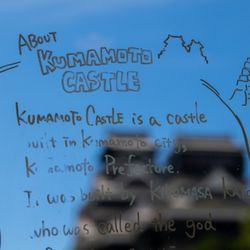 ABOUT
KUMAMOTO
CASTLE
KUMAMOTO CASTLE is a castle
built in Kumamoto city,
Kumamoto Prefecture.
It was built by KIYOMASA
who was called the god